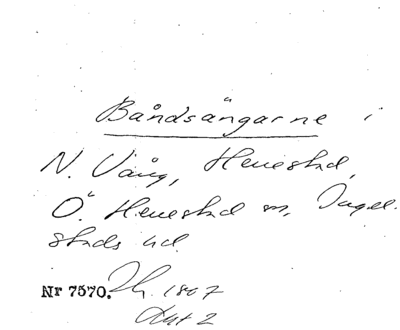 Båndsängarne i
N. Vång, Henestad,
Ö. Henestad m, Ingel-
stads hd.
Nr 7570. 1807
Akt 2